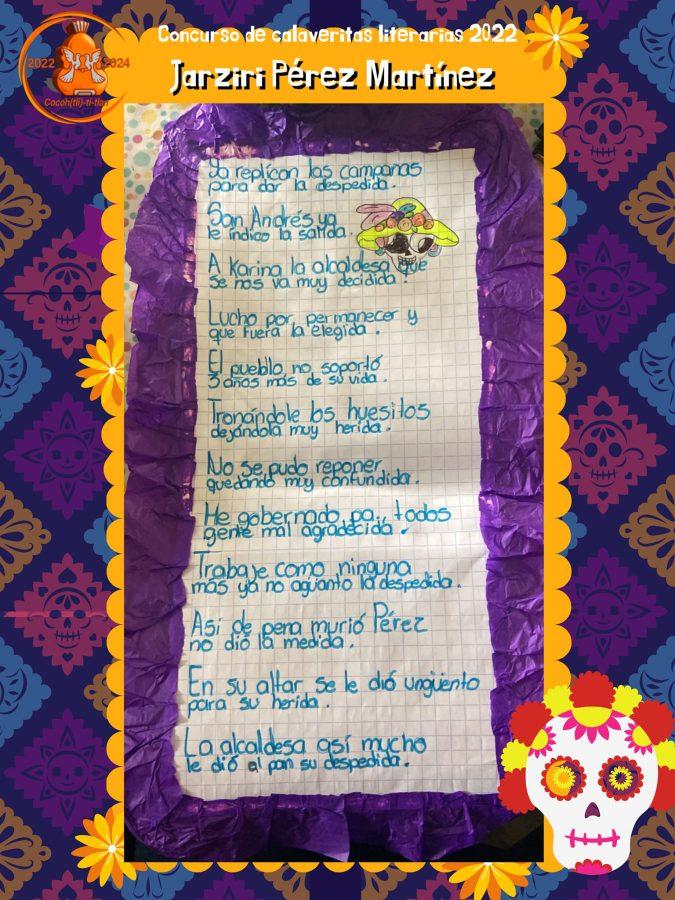 Concurso de calaveritas literarias 2022
Jarziri Pérez Martínez
2022 2024
Cocoh(tli)-ti-tlan
Ya replican las campanas
para dar la despedida.
San Andrés ya
le indico la salida.
A Karina la alcaldesa que
se nos va muy decidida.
Lucho por permanecer y
que fuera la elegida.
El pueblo no soportó
3 años más de su vida.
Tronándole los huesitos
dejándola muy herida.
No se pudo reponer
quedando muy confundida.
He gobernado pa, todos
gente mal agradecida.
Trabaje como ninguna
más ya no aguanto la despedida.
Así de pena murió Pérez
no dió la medida.
En su altar se le dió ungüento
para su herida.
La alcaldesa así mucho
le dió al pan su despedida.